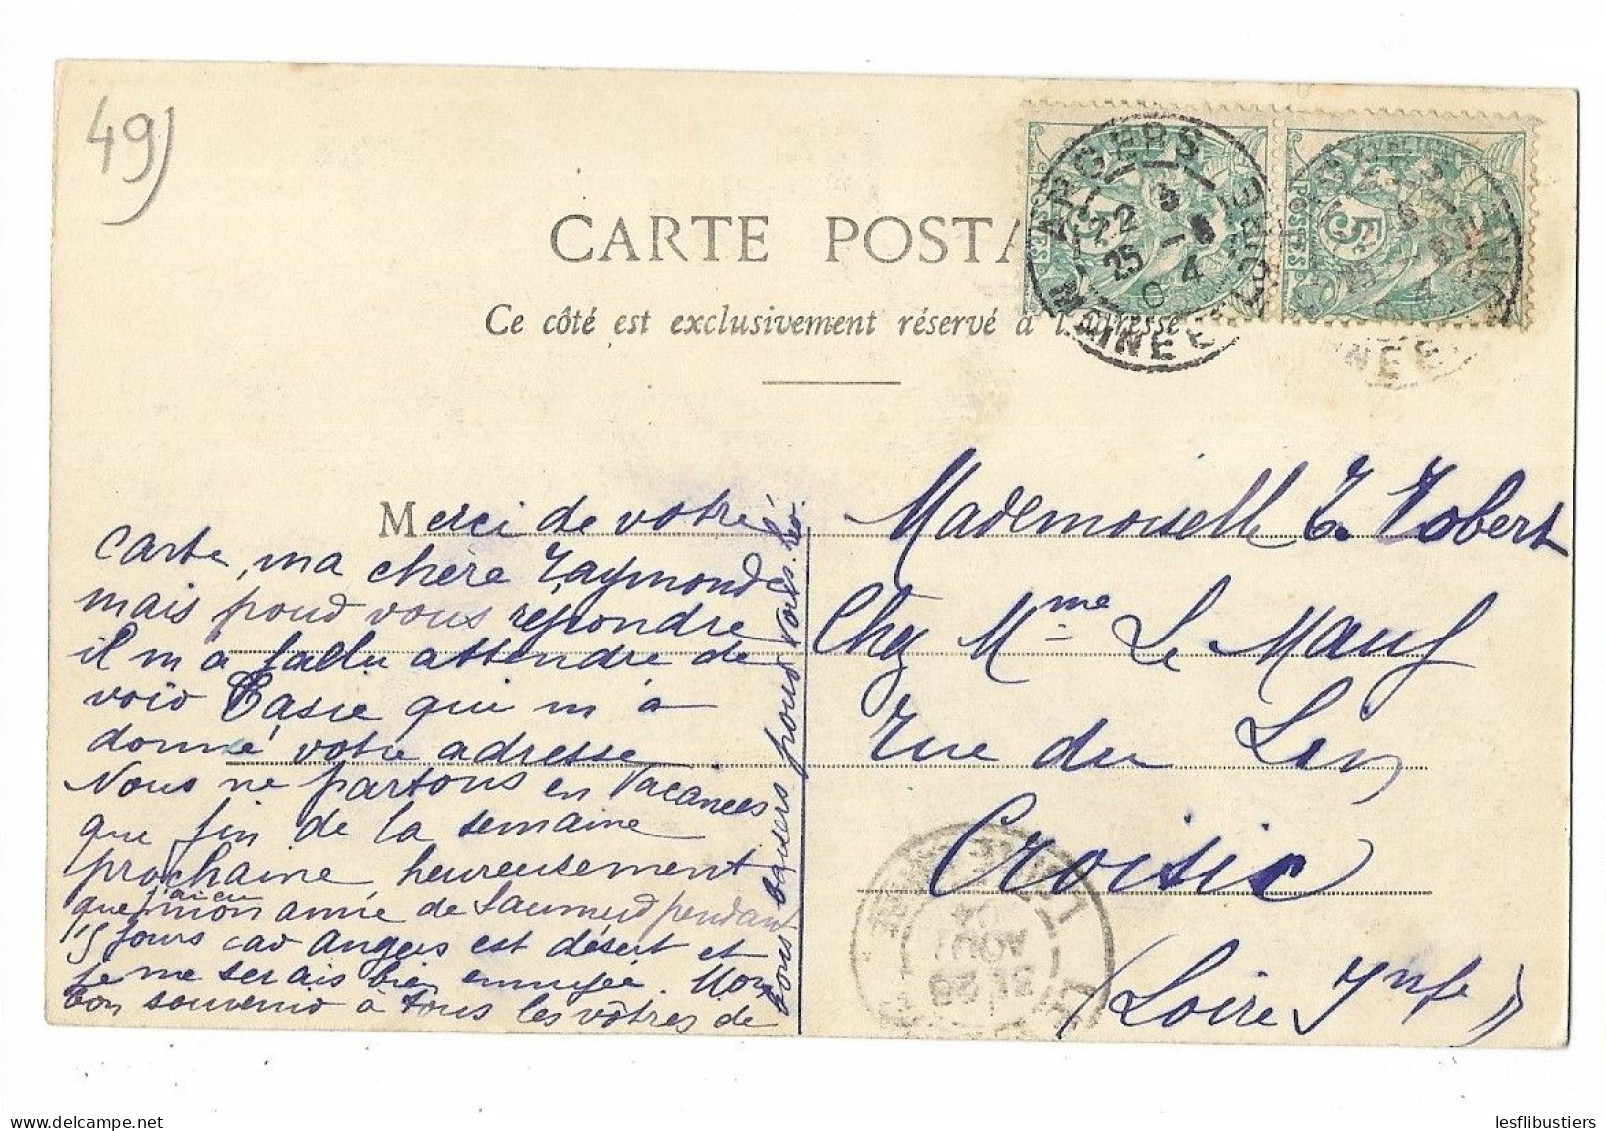 49)
CARTE POSTA
Ce côté est exclusivement réservé à l'adresse
ANGERS
22
25 - 8
04
MAINE ET LOIRE
POSTES 5
Merci de votre
carte, ma chère Raymonde
mais pour vous répondre
il m'a fallu attendre de
voir Casie qui m'a
donné votre adresse
Nous ne partons en vacances
que fin de la semaine
prochaine, heureusement
que j'ai eu mon amie de Saumur pendant
15 jours car Angers est désert et
je me serais bien ennuyée. Mon
bon souvenir à tous les vôtres de
bons baisers pour vous. Léo.
Mademoiselle R. Robert
Chez Mme Le Mauf
rue du Lin
Croisic
(Loire Infe)
LOIRE
04
AOUT
26
lesflibustiers